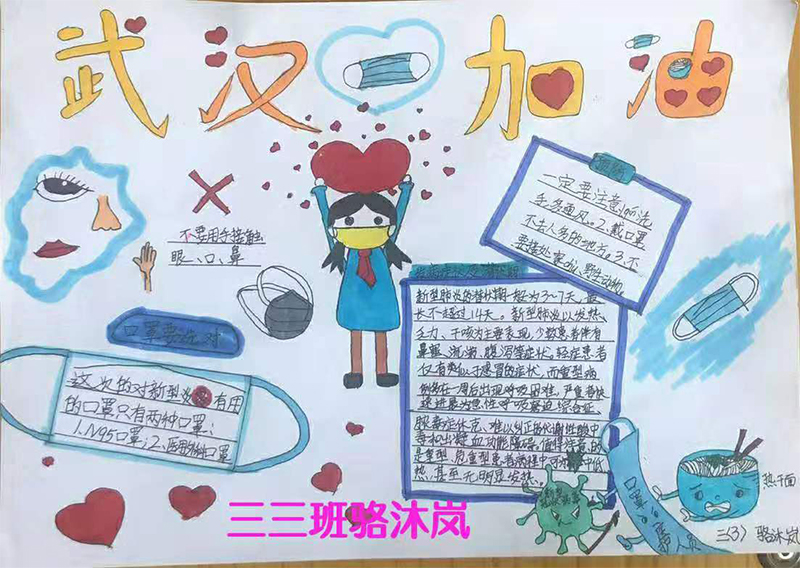 武汉加油
一定要注意1.勤洗
手,多通风。2.戴口罩
不去人多的地方。3.不
要接处家禽,野生动物
不要用手接触
眼、口、鼻
口罩要选对
这次的对新型 有用
的口罩只有两种口罩:
1.N95口罩;2.医用外科口罩
新型肺炎的潜伏期一般为3~7天,最
长不超过14天。新型肺炎以发热、
乏力、干咳为主要表现,少数患者伴有
鼻塞、流涕、腹泻等症状。轻症患者
仅有类似于感冒的症状,而重型病
例多在一周后出现呼吸困难,严重者快
速进展为急性呼吸窘迫综合征、
脓毒症休克、难以纠正的代谢性酸中
毒和出凝血功能障碍。值得注意的
是重型、危重型患者病程中可 中低
热,甚至无明显发热。
热干面
三(3) 骆沐岚
三三班骆沐岚